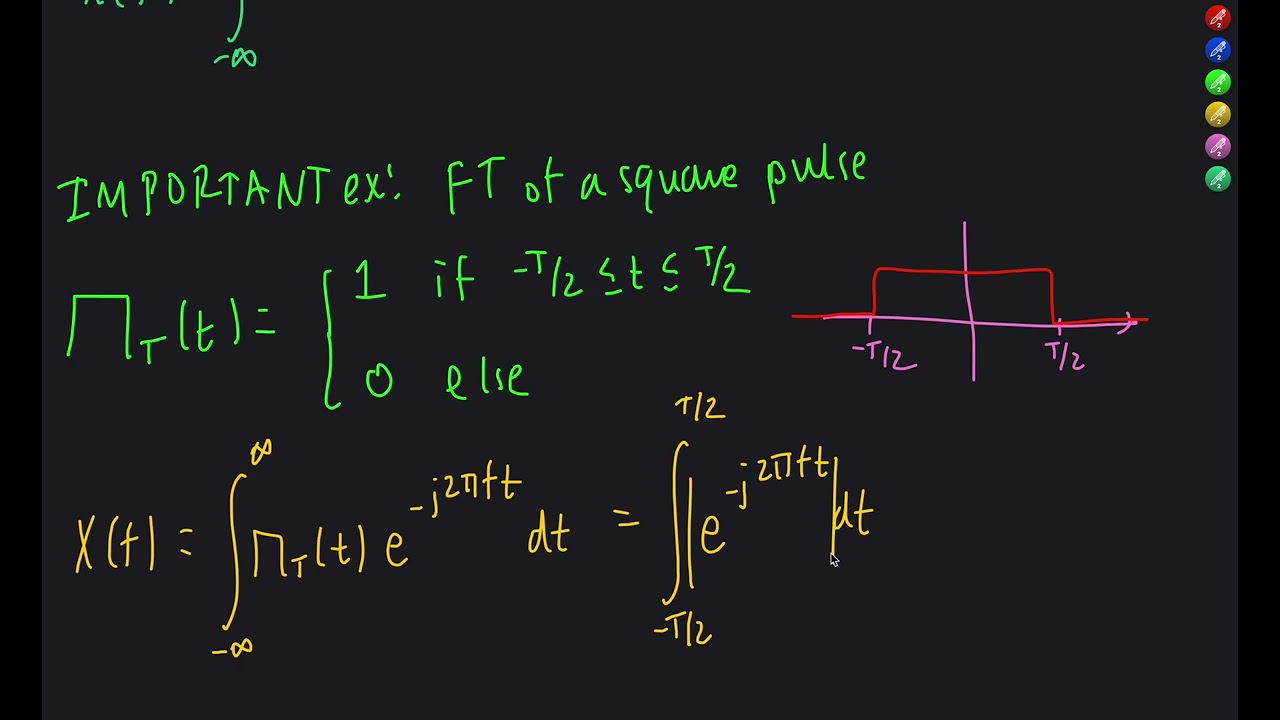 -∞
IMPORTANT ex: FT of a square pulse
∏_T(t) = { 1 if -T/2 ≤ t ≤ T/2
0 else
-T/2 T/2
X(f) = ∫_{-∞}^{∞} ∏_T(t) e^{-j2πft} dt = ∫_{-T/2}^{T/2} |e^{-j2πft}| dt